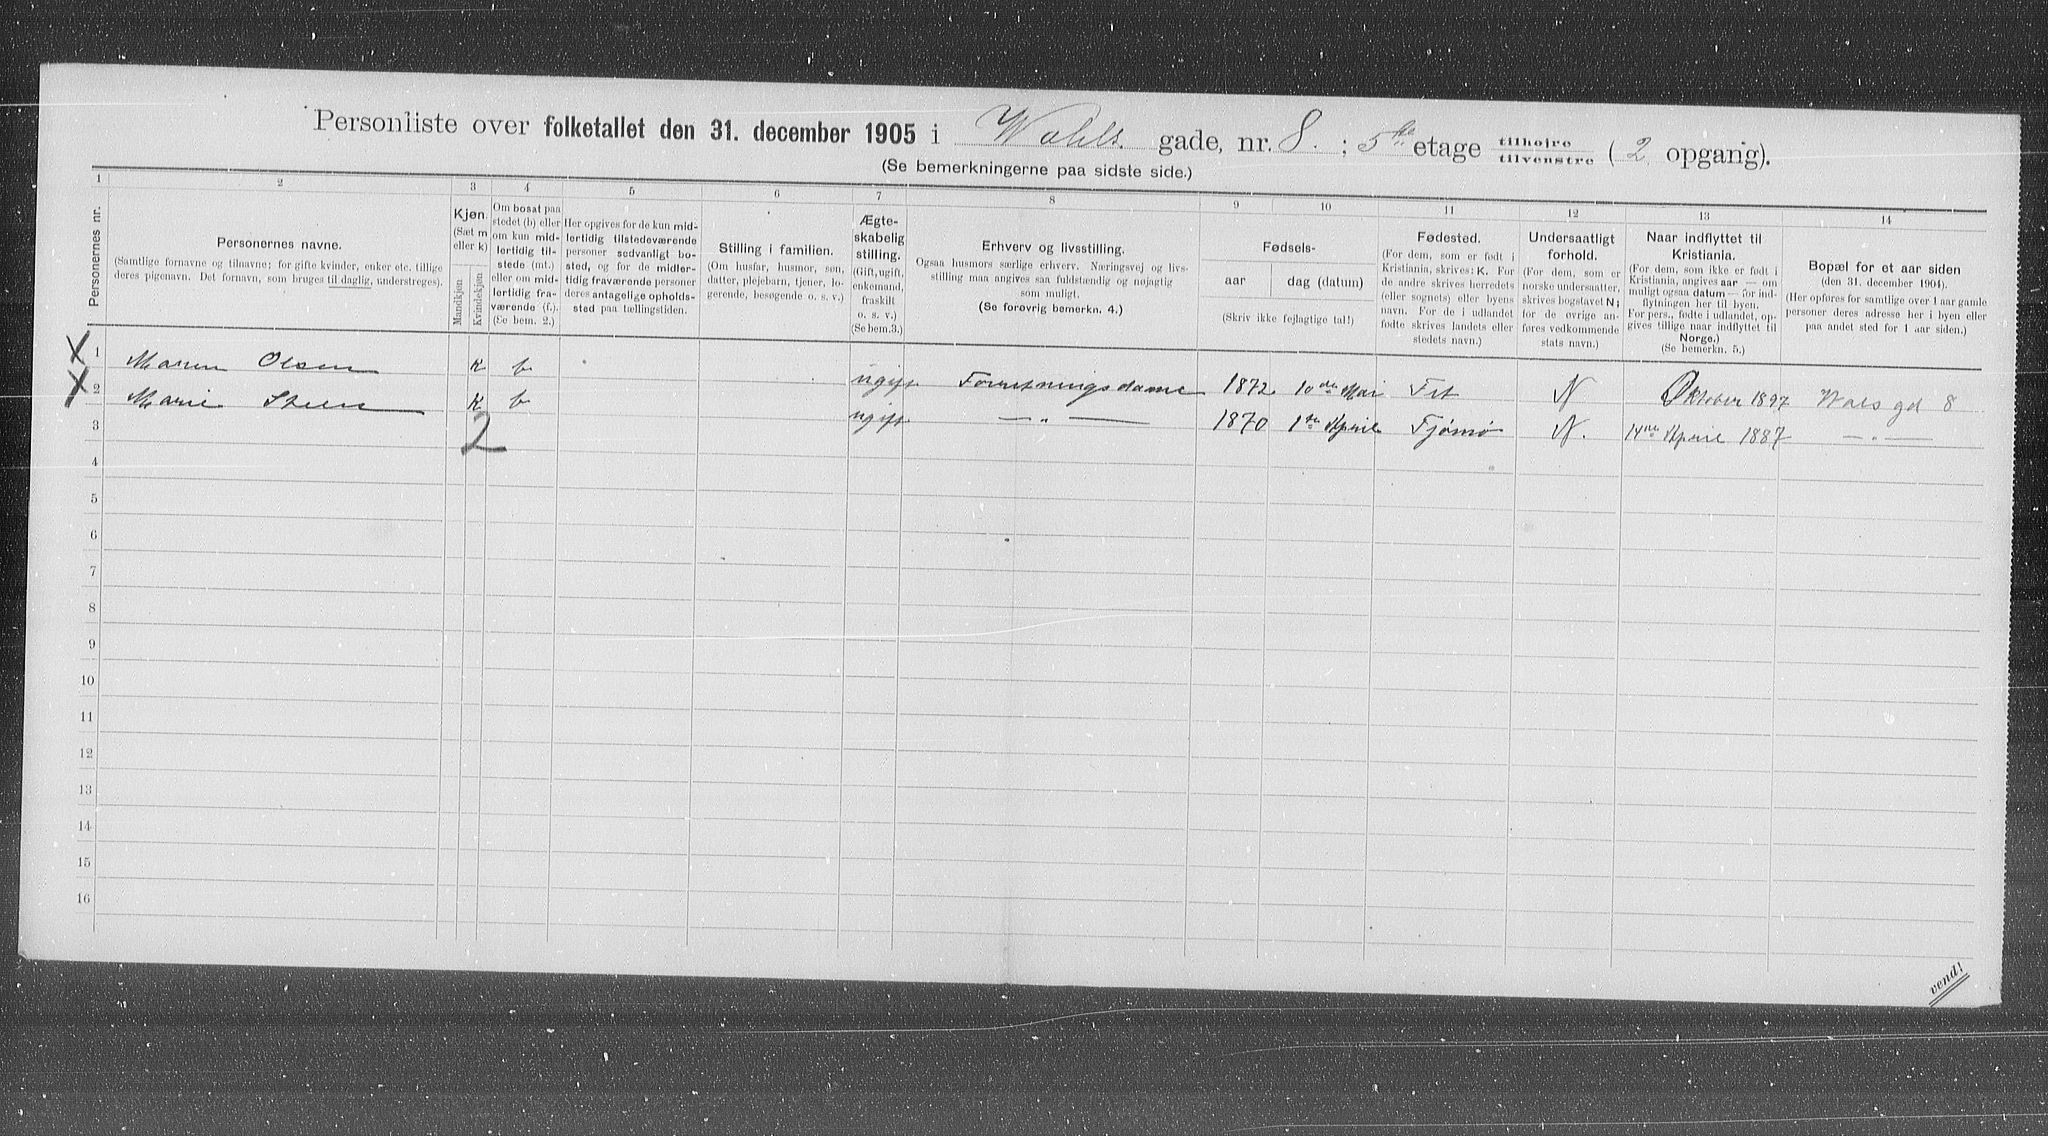 Personliste over folketallet den 31. december 1905 i Wahls gade, nr. 8. ; 5te etage tilhøire tilvenstre ( 2 opgang).
(Se bemerkningerne paa sidste side.)
1 2 3 4 5 6 7 8 9 10 11 12 13 14
Personernes nr.
Personernes navne.
(Samtlige fornavne og tilnavne; for gifte kvinder, enker etc. tillige
deres pigenavn. Det fornavn, som bruges til daglig, understreges).
Kjøn.
(Sæt m
eller k)
Mandkjøn
Kvindekjøn
Om bosat paa
stedet (b) eller
om kun mid-
lertidig til-
stede (mt.)
eller om mid-
lertidig fra-
værende (f.).
(Se bem. 2.)
Her opgives for de kun mid-
lertidig tilstedeværende
personer sedvanligt bo-
sted, og for de midler-
tidig fraværende personer
deres antagelige opholds-
sted paa tællingstiden.
Stilling i familien.
(Om husfar, husmor, søn,
datter, plejebarn, tjener, lo-
gerende, besøgende o. s. v.)
Ægte-
skabelig
stilling.
(Gift, ugift,
enkemand,
fraskilt
o. s. v.)
(Se bem.3.)
Erhverv og livsstilling.
Ogsaa husmors særlige erhverv. Næringsvej og livs-
stilling maa angives saa fuldstændig og nøjagtig
som muligt.
(Se forøvrig bemerkn. 4.)
Fødsels-
aar
dag (datum)
(Skriv ikke fejlagtige tal!)
Fødested.
(For dem, som er født i
Kristiania, skrives: K. For
de andre skrives herredets
(eller sognets) eller byens
navn. For de i udlandet
fødte skrives landets eller
stedets navn.)
Undersaatligt
forhold.
(For dem, som er
norske undersaatter,
skrives bogstavet N;
for de øvrige an-
føres vedkommende
stats navn.)
Naar indflyttet til
Kristiania.
(For dem, som ikke er født i
Kristiania, angives aar — om
muligt ogsaa datum — for ind-
flytningen her til byen.
For pers., fødte i udlandet, op-
gives tillige naar indflyttet til
Norge.)
(Se bemerkn. 5.)
Bopæl for et aar siden
(den 31. december 1904).
(Her opføres for samtlige over 1 aar gamle
personer deres adresse her i byen eller
paa andet sted for 1 aar siden.)
X 1 Maren Olsen K b ugift Forretningsdame 1872 10de Mai Fet N Oktober 1897 Wals gd 8
X 2 Marie Steen K b ugift —„— 1870 1ste April Tjømø N. 14de April 1887 —„—
3 2
4
5
6
7
8
9
10
11
12
13
14
15
16
vend!